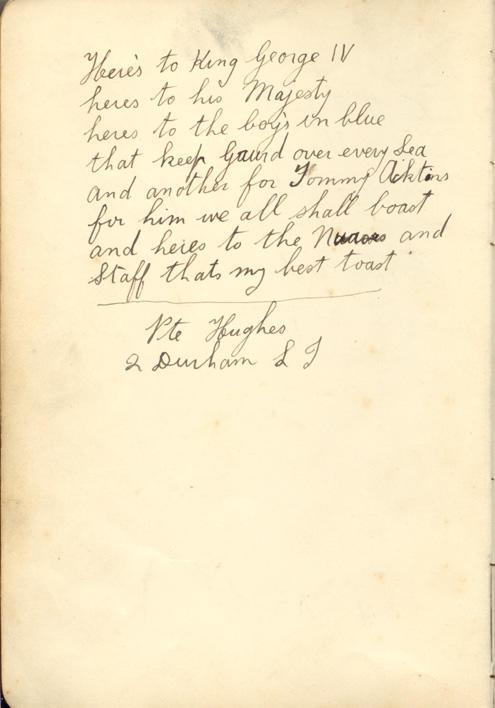 Here's to King George IV
heres to his Majesty
heres to the boys in blue
that keep Gaurd over every Sea
and another for Tommy Acktons
for him we all shall boast
and heres to the and
Staff thats my best toast
Pte Hughes
2 Durham L I